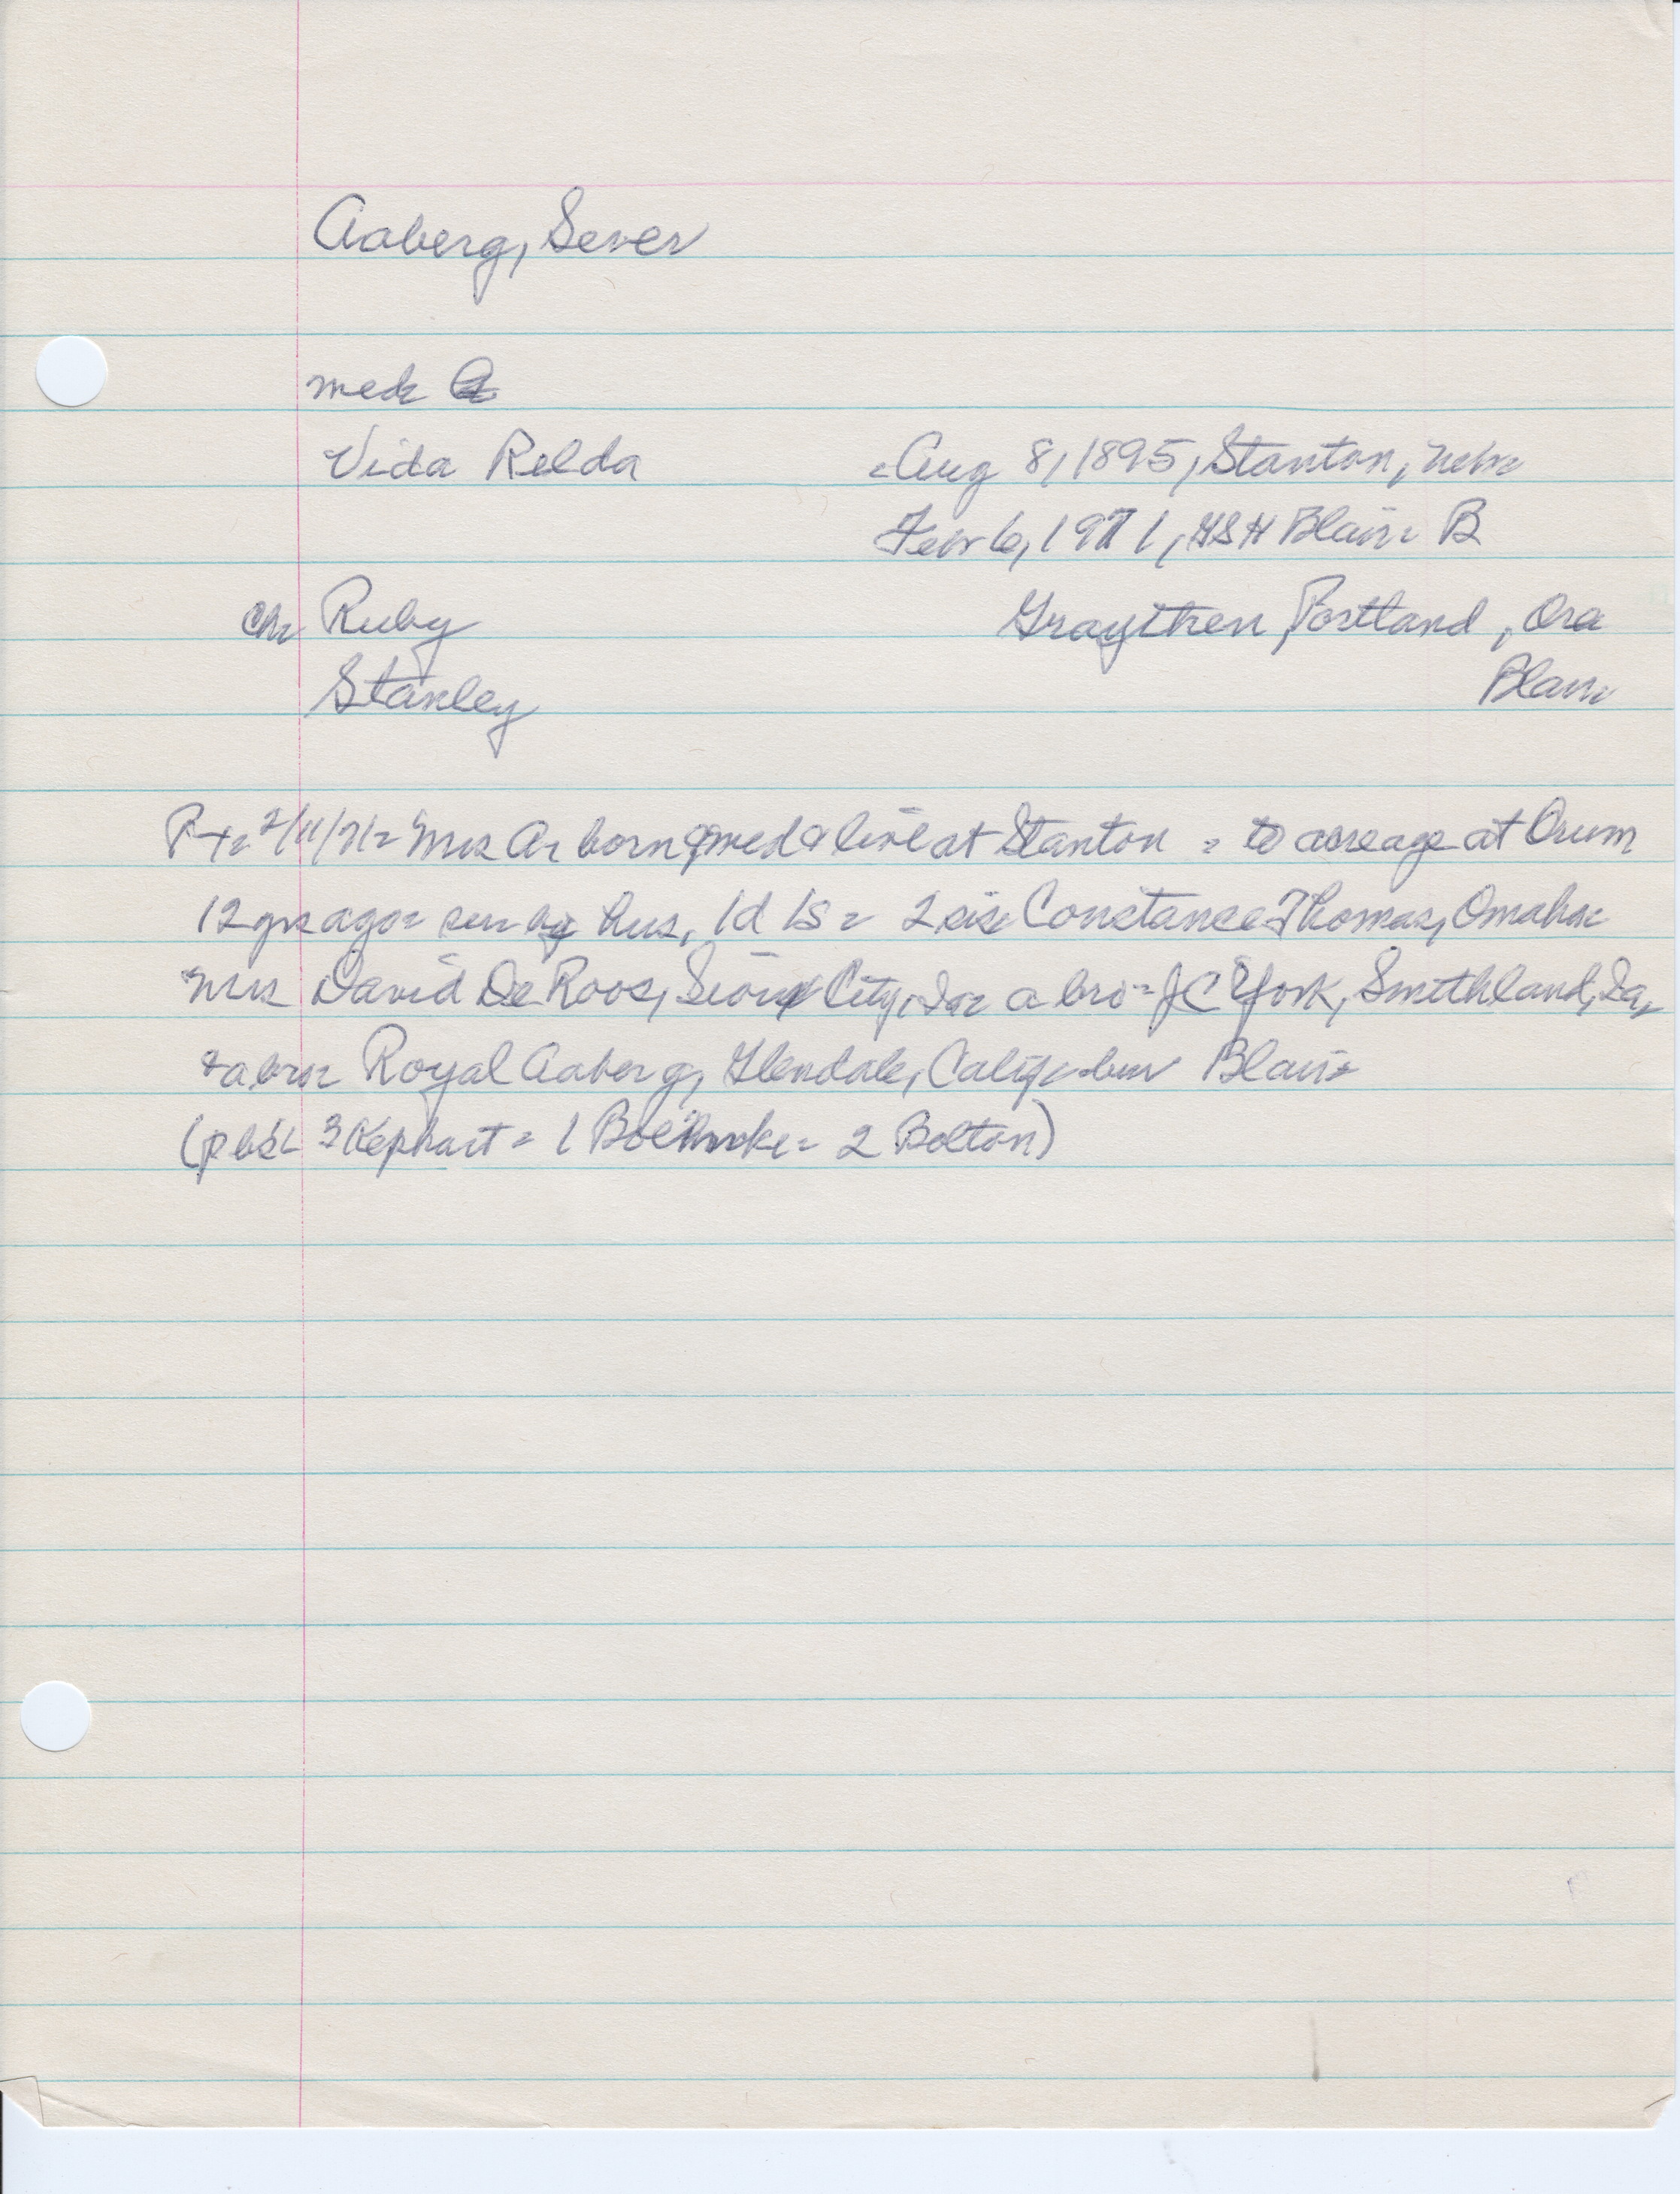 Aaberg, Sever
med
Vida Relda = Aug 8, 1895, Stanton, Nebr
Febr 6, 1971, Blair = B
Ch= Ruby Graythen, Portland, Ora
Stanley Blair
P-T= 2/11/71= Mrs A= born & med & live at Stanton = to acreage at Orum
12 yrs ago= sur by hus, 1d 1s = 2 sis= Constance Thomas, Omaha=
Mrs David De Roos, Sioux City, Ia= a bro= J C York, Smithland, Ia,
& a bro= Royal Aaberg, Glendale, Calif= bur Blair=
3 Kephart = 1 = 2 Bolton)